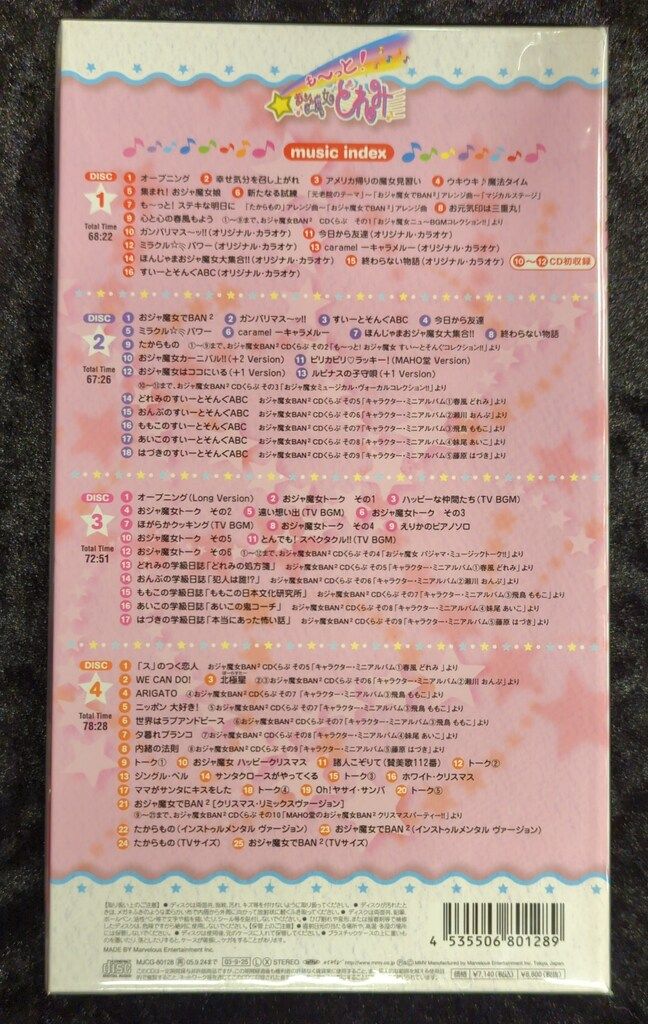 も～っと！
おジャ魔女どれみ
music index
DISC 1
Total Time 68:22
1 オープニング 2 幸せ気分を召し上がれ 3 アメリカ帰りの魔女見習い 4 ウキウキ♪魔法タイム
5 集まれ! おジャ魔女娘 6 新たなる試練 「元老院のテーマ」～「おジャ魔女でBAN²」アレンジ曲～「マジカルステージ」
7 も～っと! ステキな明日に 「たからもの」アレンジ曲～「おジャ魔女でBAN²」アレンジ曲 8 お元気印は三重丸!
9 心と心の春風もよう ①～⑨まで、おジャ魔女BAN² CDくらぶ その1「おジャ魔女ニューBGMコレクション!!」より
10 ガンバリマス～ッ!!(オリジナル・カラオケ) 11 今日から友達(オリジナル・カラオケ)
12 ミラクル☆パワー(オリジナル・カラオケ) 13 caramel ーキャラメルー(オリジナル・カラオケ)
14 ほんじゃまおジャ魔女大集合!!(オリジナル・カラオケ) 15 終わらない物語(オリジナル・カラオケ) 10～12 CD初収録
16 すいーとそんぐABC(オリジナル・カラオケ)
DISC 2
Total Time 67:26
1 おジャ魔女でBAN² 2 ガンバリマス～ッ!! 3 すいーとそんぐABC 4 今日から友達
5 ミラクル☆パワー 6 caramel ーキャラメルー 7 ほんじゃまおジャ魔女大集合!! 8 終わらない物語
9 たからもの ①～⑨まで、おジャ魔女BAN² CDくらぶ その2「も～っと! おジャ魔女 すい～とそんぐコレクション!!」より
10 おジャ魔女カーニバル!!(+2 Version) 11 ピリカピリ♡ラッキー! (MAHO堂 Version)
12 おジャ魔女はココにいる(+1 Version) 13 ルピナスの子守唄(+1 Version)
⑩～⑬まで、おジャ魔女BAN² CDくらぶ その3「おジャ魔女ミュージカル・ヴォーカルコレクション!!」より
14 どれみのすいーとそんぐABC おジャ魔女BAN² CDくらぶ その5「キャラクター・ミニアルバム①春風 どれみ」より
15 おんぷのすいーとそんぐABC おジャ魔女BAN² CDくらぶ その6「キャラクター・ミニアルバム②瀬川 おんぷ」より
16 ももこのすいーとそんぐABC おジャ魔女BAN² CDくらぶ その7「キャラクター・ミニアルバム③飛鳥 ももこ」より
17 あいこのすいーとそんぐABC おジャ魔女BAN² CDくらぶ その8「キャラクター・ミニアルバム④妹尾 あいこ」より
18 はづきのすいーとそんぐABC おジャ魔女BAN² CDくらぶ その9「キャラクター・ミニアルバム⑤藤原 はづき」より
DISC 3
Total Time 72:51
1 オープニング(Long Version) 2 おジャ魔女トーク その1 3 ハッピーな仲間たち(TV BGM)
4 おジャ魔女トーク その2 5 遠い想い出(TV BGM) 6 おジャ魔女トーク その3
7 ほがらかクッキング(TV BGM) 8 おジャ魔女トーク その4 9 えりかのピアノソロ
10 おジャ魔女トーク その5 11 とんでも! スペクタクル!!(TV BGM)
12 おジャ魔女トーク その6 ①～⑫まで、おジャ魔女BAN² CDくらぶ その4「おジャ魔女 パジャマ・ミュージックトーク!!」より
13 どれみの学級日誌「どれみの処方箋」 おジャ魔女BAN² CDくらぶ その5「キャラクター・ミニアルバム①春風 どれみ」より
14 おんぷの学級日誌「犯人は誰!?」 おジャ魔女BAN² CDくらぶ その6「キャラクター・ミニアルバム②瀬川 おんぷ」より
15 ももこの学級日誌「ももこの日本文化研究所」 おジャ魔女BAN² CDくらぶ その7「キャラクター・ミニアルバム③飛鳥 ももこ」より
16 あいこの学級日誌「あいこの鬼コーチ」 おジャ魔女BAN² CDくらぶ その8「キャラクター・ミニアルバム④妹尾 あいこ」より
17 はづきの学級日誌「本当にあった怖い話」 おジャ魔女BAN² CDくらぶ その9「キャラクター・ミニアルバム⑤藤原 はづき」より
DISC 4
Total Time 78:28
1 「ス」のつく恋人 おジャ魔女BAN² CDくらぶ その5「キャラクター・ミニアルバム①春風 どれみ」より
2 WE CAN DO! 3 北極星 ②③おジャ魔女BAN² CDくらぶ その6「キャラクター・ミニアルバム②瀬川 おんぷ」より
4 ARIGATO ④おジャ魔女BAN² CDくらぶ その7「キャラクター・ミニアルバム③飛鳥 ももこ」より
5 ニッポン 大好き! ⑤おジャ魔女BAN² CDくらぶ その7「キャラクター・ミニアルバム③飛鳥 ももこ」より
6 世界はラブアンドピース ⑥おジャ魔女BAN² CDくらぶ その7「キャラクター・ミニアルバム③飛鳥 ももこ」より
7 夕暮れブランコ ⑦おジャ魔女BAN² CDくらぶ その8「キャラクター・ミニアルバム④妹尾 あいこ」より
8 内緒の法則 ⑧おジャ魔女BAN² CDくらぶ その9「キャラクター・ミニアルバム⑤藤原 はづき」より
9 トーク① 10 おジャ魔女 ハッピークリスマス 11 諸人こぞりて(賛美歌112番) 12 トーク②
13 ジングル・ベル 14 サンタクロースがやってくる 15 トーク③ 16 ホワイト・クリスマス
17 ママがサンタにキスをした 18 トーク④ 19 Oh!ヤサイ・サンバ 20 トーク⑤
21 おジャ魔女でBAN²[クリスマス・リミックスヴァージョン]
⑨～㉑まで、おジャ魔女BAN² CDくらぶ その10「MAHO堂のおジャ魔女BAN² クリスマスパーティー!!」より
22 たからもの(インストゥルメンタル ヴァージョン) 23 おジャ魔女でBAN²(インストゥルメンタル ヴァージョン)
24 たからもの(TVサイズ) 25 おジャ魔女でBAN²(TVサイズ)
【取り扱い上のご注意】
MADE BY Marvelous Entertainment Inc.
4 535506 801289
MJCG-80128 05.9.24まで 03-9-25 STEREO http://www.mmv.co.jp MMV Manufactured by Marvelous Entertainment Inc. Tokyo, Japan.
価格 ¥7,140(税込) ¥6,800(税抜)